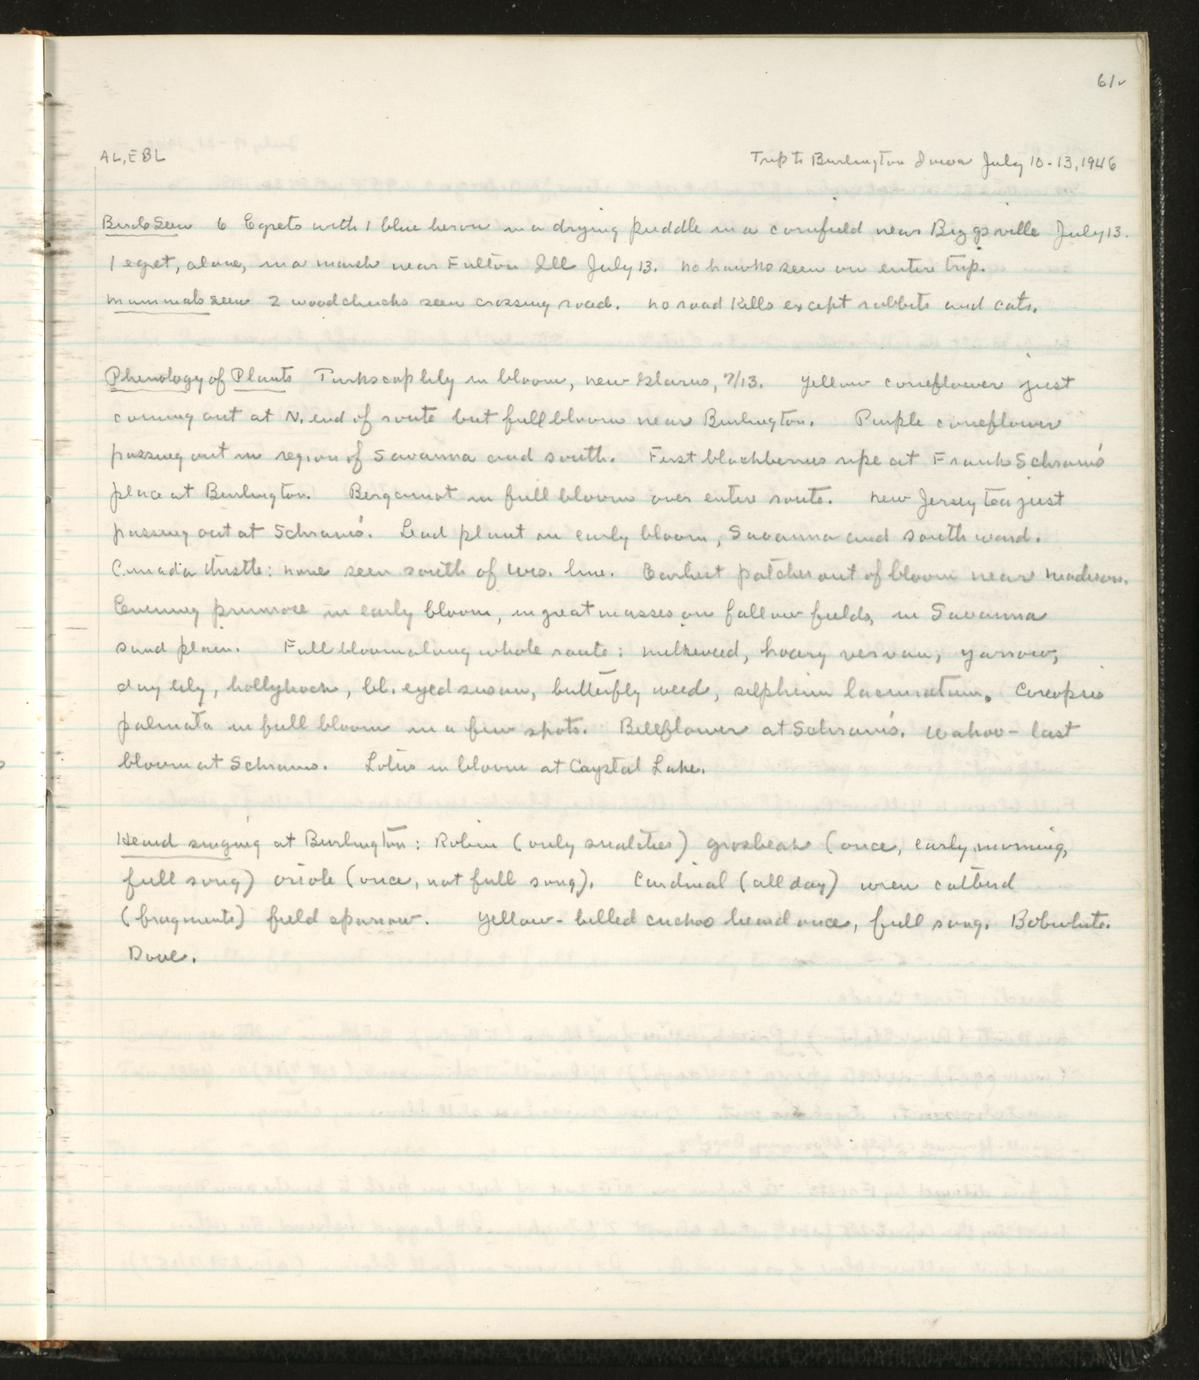 61
AL, EBL
Trip to Burlington Iowa July 10-13, 1946
Birds Seen 6 Egrets with 1 blue heron in a drying puddle in a cornfield near Biggsville July 13.
1 egret, alone, in a marsh near Fulton Ill July 13. No hawks seen on entire trip.
Mammals seen 2 woodchucks seen crossing road. No road kills except rabbits and cats.
Phenology of Plants Turkscap lily in bloom, New Glarus, 7/13. Yellow coneflower just
coming out at N. end of route but full bloom near Burlington. Purple coneflower
passing out in region of Savanna and south. First blackberries ripe at Frank Schram's
place at Burlington. Bergamot in full bloom over entire route. New Jersey tea just
passing out at Schram's. Lead plant in early bloom, Savanna and southward.
Canada thistle: none seen south of Wis. line. Earliest patches out of bloom near Madison.
Evening primrose in early bloom, in great masses on fallow fields, in Savanna
sand plain. Full bloom along whole route: milkweed, hoary vervain, yarrow,
day lily, hollyhock, bl. eyed susan, butterfly weed, silphium laciniatum. Coreopsis
palmata in full bloom in a few spots. Bellflower at Schram's. Wahoo - last
bloom at Schrams. Lotus in bloom at Crystal Lake.
Heard singing at Burlington: Robin (only snatches) grosbeak (once, early morning,
full song) oriole (once, not full song). Cardinal (all day) wren catbird
(fragments) field sparrow. Yellow-billed cuckoo heard once, full song. Bobwhite.
Dove.